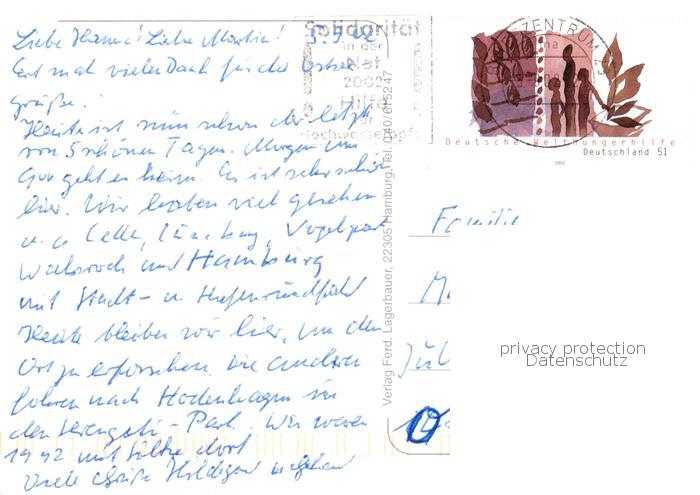 Liebe Hanne! Liebe Martin! 5.9.02
Erst mal vielen Dank für die Ostsee
grüße.
Heute ist nun schon der letzte
von 5 schönen Tagen. Morgen um
geht es heim. Es ist sehr schön
hier. Wir haben viel gesehen
u. a Celle, Lüneburg, Vogelpark
Walsrode und Hamburg
mit Stadt- u. Hafenrundfahrt
Heute bleiben wir hier, um den
Ort zu erforschen. Die anderen
fahren nach Hodenhagen in
den Serengeti-Park. Wir waren
1992 mit dort
Viele Grüße Hildegard
Solidarität
in der
Not
2002
Hilfe
für
Hochwasseropfer
Verlag Ferd. Lagerbauer, 22305 Hamburg, Tel. 040/615247
ZENTRUM
Deutsche Welthungerhilfe
Deutschland 51
2002
Familie
privacy protection
Datenschutz